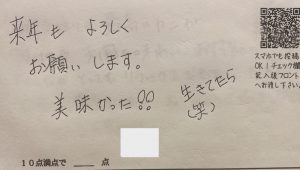 来年も よろしく
お願いします。
美味かった!!
生きてたら
(笑)
スマホでも投稿
OK!チェック欄
記入後フロント
へお渡し下さい。
10点満点で＿＿点